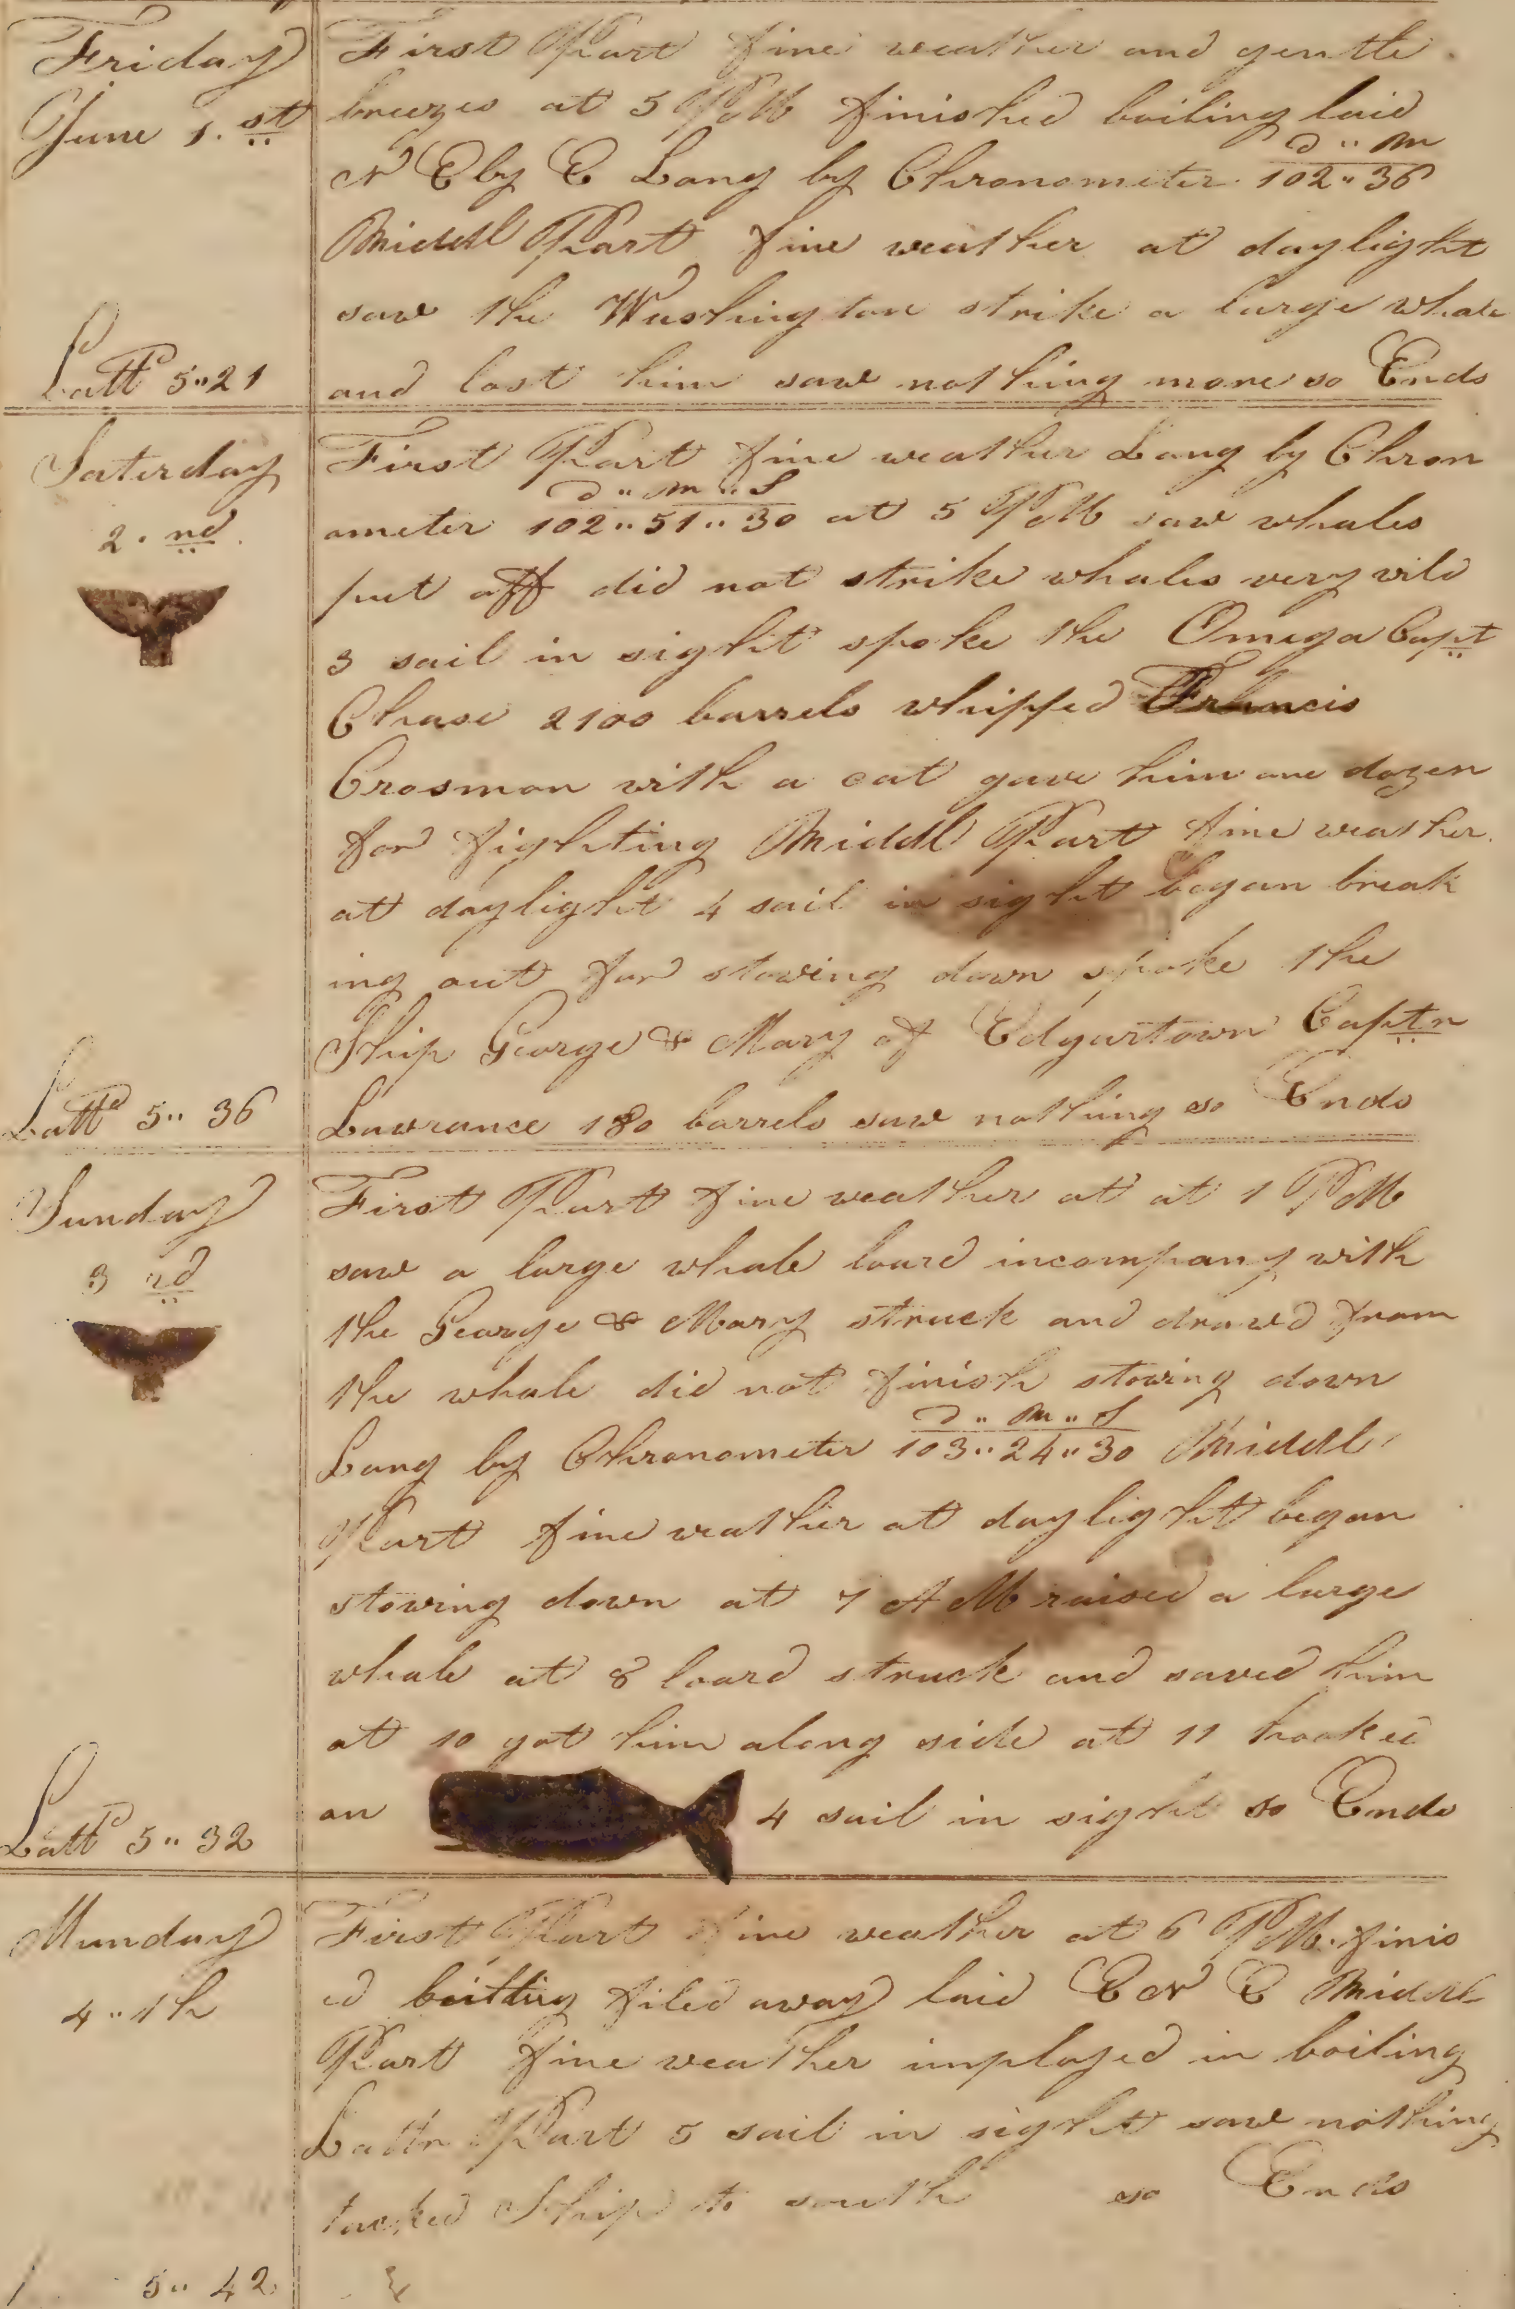 Friday
June 1.st
Latt 5"21
First Part fine weather and gentle
breezes at 5 P M finished boiling laid
d " m
N E by E Long by Chronometer 102"36
Middl Part fine weather at daylight
saw the Washington strike a large whale
and lost him saw nothing more so Ends
Saterday
2.nd
Latt 5" 36
First Part fine weather Long by Chron
d " m " S
ometer 102"51"30 at 5 P M saw whales
put off did not strike whales very wild
3 sail in sight spoke the Omega Capt
Chase 2100 barrels whipped Francis
Crosman with a cat gave him one dozen
for fighting Middl Part fine weather
at daylight 4 sail in sight began break
ing out for stowing down spoke the
Ship George & Mary of Edgartown Captn
Lawrance 180 barrels saw nothing so Ends
Sunday
3 rd
Latt 5" 32
First Part fine weather at at 1 P M
saw a large whale loard incompany with
the George & Mary struck and drawd from
the whale did not finish stowing down
d " m " S
Long by Chronometer 103"24"30 Middl
Part fine weather at daylight began
stowing down at 7 A M raised a large
whale at 8 loard struck and saved him
at 10 got him along side at 11 hooked
on 4 sail in sight so Ends
Munday
4"th
5" 42
First Part fine weather at 6 P M. finis
ed filed away laid E N E Middl
Part fine weather imployed in boiling
Lattr Part 5 sail in sight saw nothing
tacked Ship to south so Ends